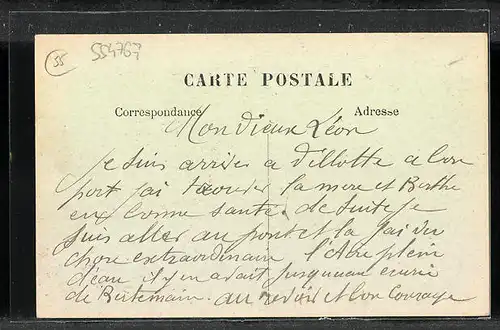 55
554767
CARTE POSTALE
Correspondance
Adresse
Mon vieux Léon
Je suis arriver a dillotte a bon
port jai trouver la mere et Berthe
en bonne santé. de suite je
suis aller au pont et la jai vu
chose extraordinaire plein
d'eau il y en avait jusqueau ecurie
de Bertemain. au revoir et bon courage